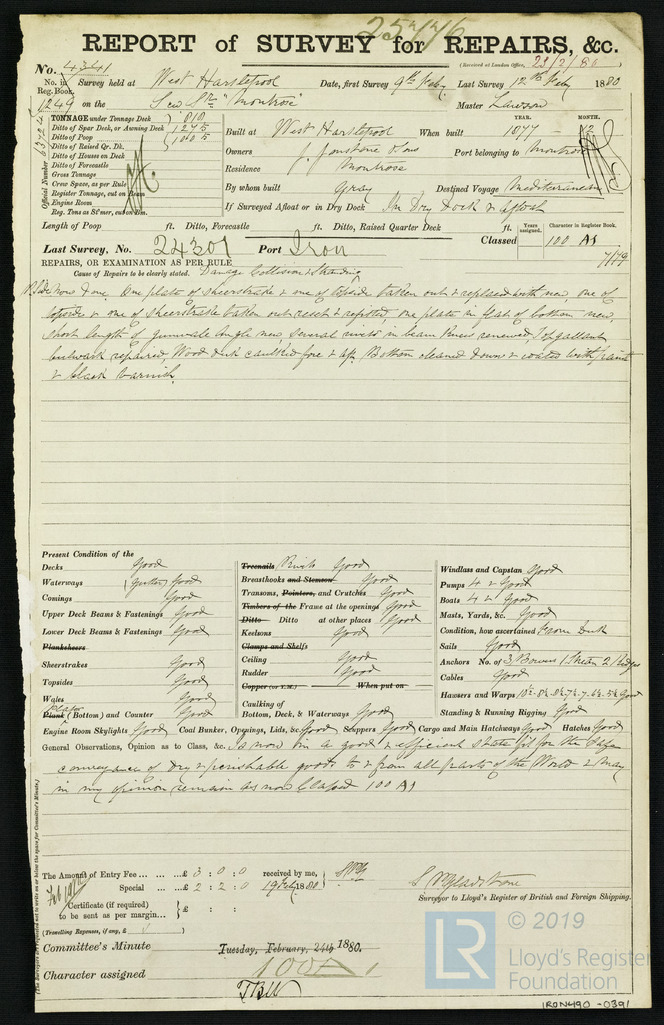 25776
REPORT of SURVEY for REPAIRS, &c.
(Received at London Office, 23/2/80)
No. 4341
No. in Reg. Book. Survey held at West Hartlepool Date, first Survey 9th Feby Last Survey 12th Feby 1880
1249 on the Scw Sr "Montrose" Master Lawson
TONNAGE under Tonnage Deck 810
Ditto of Spar Deck, or Awning Deck 1275
Ditto of Poop
Ditto of Raised Qr. Dk.
Ditto of Houses on Deck
Ditto of Forecastle
Gross Tonnage
Crew Space, as per Rule
Register Tonnage, cut on Beam
Engine Room
Reg. Tons as St'mer, cut on Bm.
Official Number
Built at West Hartlepool When built YEAR. 1877 MONTH. 12
Owners Johnstone & Sons Port belonging to Montrose
Residence Montrose
By whom built Gray Destined Voyage Mediterranean
If Surveyed Afloat or in Dry Dock In Dry Dock & Afloat
Length of Poop ft. Ditto, Forecastle ft. Ditto, Raised Quarter Deck ft.
Years assigned. Character in Register Book.
Last Survey, No. 24301 Port Iron Classed 100 A1
7/79
REPAIRS, OR EXAMINATION AS PER RULE
Cause of Repairs to be clearly stated. Damage Collision & Stranding
now done. One plate of sheerstrake & one of topside taken out & replaced with new, one of
topside & one of sheerstrake taken out reset & refitted, one plate in flat of bottom new,
short length of gunwale angle new, several rivets in beam knees renewed, Topgallant
bulwark repaired, Wood deck caulked fore & aft. Bottom cleaned down & coated with paint
& black varnish.
Present Condition of the
Decks Good
Waterways (Gutter) Good
Comings Good
Upper Deck Beams & Fastenings Good
Lower Deck Beams & Fastenings Good
Planksheers
Sheerstrakes Good
Topsides Good
Wales Good
Plank Plates (Bottom) and Counter Good
Treenails Rivets Good
Breasthooks and Stemson Good
Transoms, Pointers, and Crutches Good
Timbers of the Frame at the openings Good
Ditto Ditto at other places Good
Keelsons Good
Clamps and Shelfs
Ceiling Good
Rudder Good
Copper (or Y.M.) When put on
Caulking of
Bottom, Deck, & Waterways Good
Windlass and Capstan Good
Pumps 4 & Good
Boats 4 & Good
Masts, Yards, &c. Good
Condition, how ascertained From Deck
Sails Good
Anchors No. of 3 Bowers 1 Stream 2 Kedges
Cables Good
Hawsers and Warps Good
Standing & Running Rigging Good
Engine Room Skylights Good Coal Bunker, Openings, Lids, &c. Good Scuppers Good Cargo and Main Hatchways Good Hatches Good
General Observations, Opinion as to Class, &c. Is now in a good & efficient state fit for the safe
conveyance of Dry & perishable goods to & from all parts of the World & may
in my opinion remain as now Classed 100 A1
(The Surveyors are requested not to write on or below the space for Committee's Minute.)
The Amount of Entry Fee £ 3 : 0 : 0 received by me,
Special £ 2 : 2 : 0 19 Feby 1880
Certificate (if required) to be sent as per margin £ : :
(Travelling Expenses, if any, £ )
Surveyor to Lloyd's Register of British and Foreign Shipping.
Committee's Minute Tuesday, February, 24th 1880.
Character assigned 100 A1
LR
© 2019
Lloyd's Register
Foundation
IRON490-0391